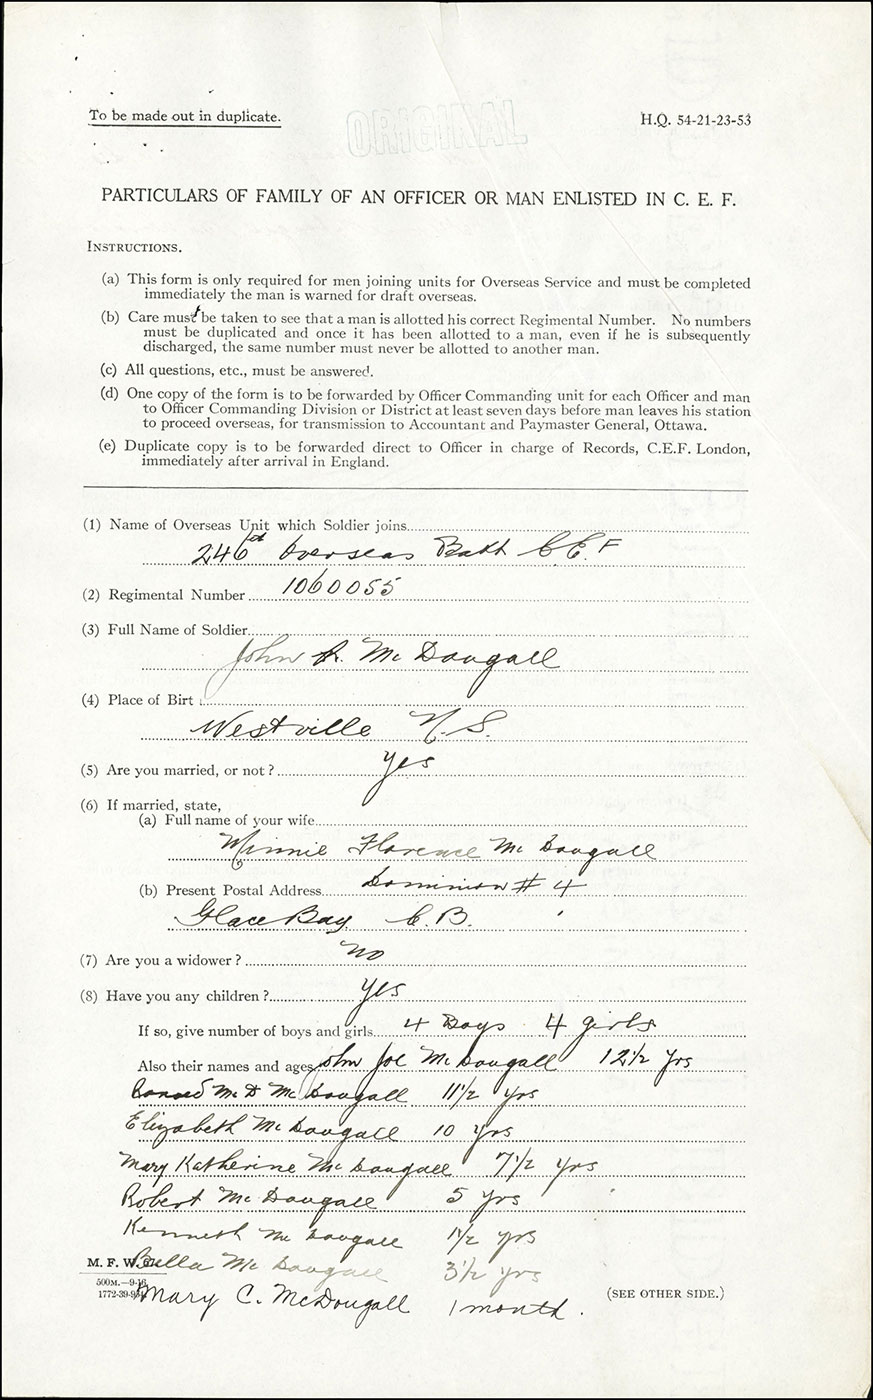 To be made out in duplicate.
H.Q. 54-21-23-53
ORIGINAL
PARTICULARS OF FAMILY OF AN OFFICER OR MAN ENLISTED IN C. E. F.
INSTRUCTIONS.
(a) This form is only required for men joining units for Overseas Service and must be completed
immediately the man is warned for draft overseas.
(b) Care must be taken to see that a man is allotted his correct Regimental Number. No numbers
must be duplicated and once it has been allotted to a man, even if he is subsequently
discharged, the same number must never be allotted to another man.
(c) All questions, etc., must be answered.
(d) One copy of the form is to be forwarded by Officer Commanding unit for each Officer and man
to Officer Commanding Division or District at least seven days before man leaves his station
to proceed overseas, for transmission to Accountant and Paymaster General, Ottawa.
(e) Duplicate copy is to be forwarded direct to Officer in charge of Records, C.E.F. London,
immediately after arrival in England.
(1) Name of Overseas Unit which Soldier joins
246 Overseas Batt C.E.F
(2) Regimental Number 1060055
(3) Full Name of Soldier
John R. McDougall
(4) Place of Birt
Westville N.S.
(5) Are you married, or not? Yes
(6) If married, state,
(a) Full name of your wife
Minnie Florence McDougall
(b) Present Postal Address Dominion # 4
Glace Bay C.B.
(7) Are you a widower? No
(8) Have you any children? Yes
If so, give number of boys and girls 4 Boys 4 girls
Also their names and ages John Joe McDougall 12 1/2 Yrs
McD McDougall 11 1/2 yrs
Elizabeth McDougall 10 yrs
Mary Katherine McDougall 7 1/2 yrs
Robert McDougall 5 yrs
Kenneth McDougall 1 1/2 yrs
M. F. W. Bella McDougall 3 1/2 yrs
500M.—9-16
1772-39-9
Mary C. McDougall 1 month.
(SEE OTHER SIDE.)